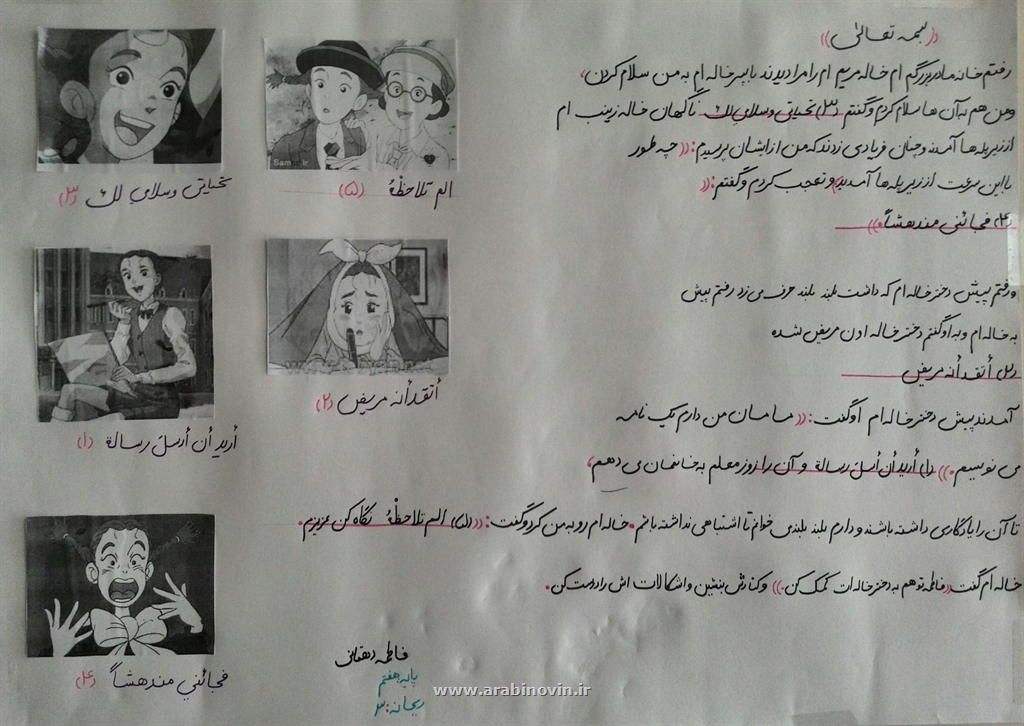 ((بسمه تعالی))
رفتم خانه مادربزرگم ام خاله مریم ام را مرا دیدند با پسر خاله ام به من سلام کردن،
ومن هم به آن ها سلام کردم و گفتم (۳) تحیاتی وسلامی لك ناگهان خاله زینب ام
از زیر پله ها آمد و چنان فریادی زدند که من از ایشان پرسیدم: ((چه طور
با این سرعت از زیر پله ها آمدید)) و تعجب کردم و گفتم: ((
(۴) فجائني مندهشاً))
و رفتم پیش دختر خاله ام که داشت بلند بلند حرف می زد رفتم پیش
به خاله ام و به او گفتم دختر خاله ادن مریض شده
(۲) أتقد أنه مریض
آمدند پیش دختر خاله ام او گفت: ((مامان من دارم یک نامه
می نویسم.)) (۱) أرید أن أرسل رسالة و آن را روز معلم به خانممان می دهم،
تا آن را یادگاری داشته باشند و دارم بلند بلندی خوانم تا اشتباهی نداشته باشم. خاله ام رو به من کرد و گفت: ((۵) الم تلاحظْهُ نگاه کن عزیزم.
خاله ام گفت ((فاطمه تو هم به دختر خاله ات کمک کن.)) و کنارش بنشین و اشکالات اش را درست کن.
تحیاتی وسلامی لك (۳)
الم تلاحظْهُ (۵)
أرید أن أرسل رسالة (۱)
أتقد أنه مریض (۲)
فجائني مندهشاً (۴)
فاطمه دهقانی
پایه هفتم
ریحانه: ۳
www.arabinovin.ir